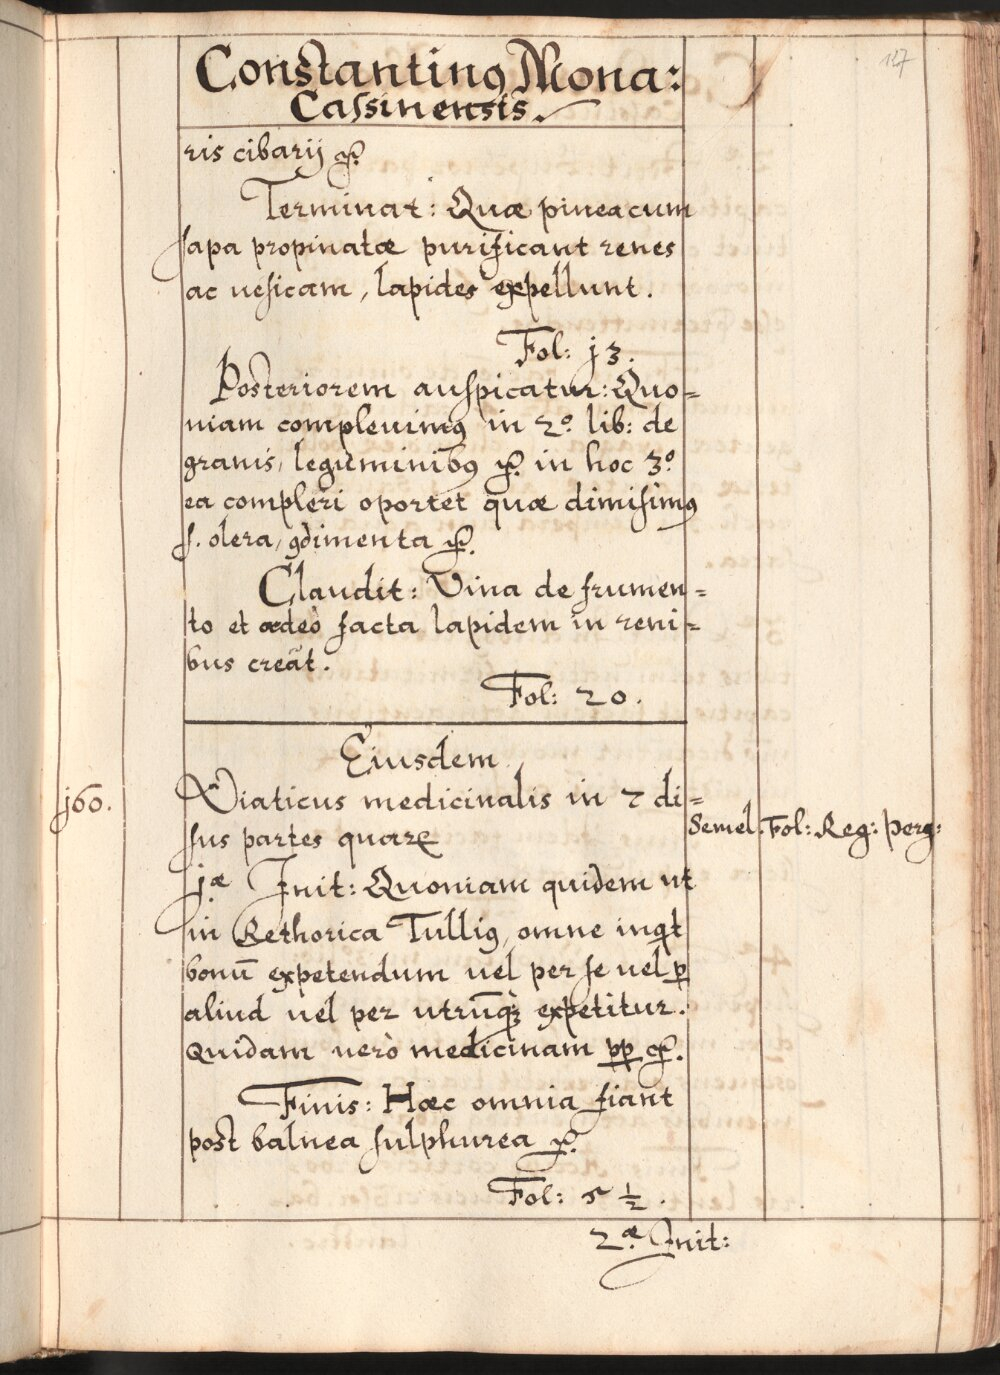 127
Constantinꝰ Mona:
Cassinensis.
ris cibarij ꝛc.
Terminat: Quæ pinea cum
sapa propinatæ purificant renes
ac uesicam, lapides expellunt.
Fol: j3.
Posteriorem auspicatur: Quo=
niam compleuimꝰ in 2.º lib: de
granis, leguminibꝰ ꝛc. in hoc 3.º
ea compleri oportet quæ dimisimꝰ
s. olera, ꝯdimenta ꝛc.
Claudit: Vina de frumen=
to et ædeò facta lapidem in reni=
bus creāt.
Fol: 20.
Eiusdem
j60.
Viaticus medicinalis in 7 di=
sus partes quarꝝ
Semel. Fol: Reg: perg:
j.æ Init: Quoniam quidem ut
in Rethorica Tulliꝰ, omne inqt
bonū expetendum uel per se uel ꝑ
aliud uel per utrūqꝫ expetitur.
Quidam uerò medicinam ꝑꝑ ꝛc.
Finis: Hæc omnia fiant
post balnea sulphurea ꝛc.
Fol: 5 ½.
2.æ Init: